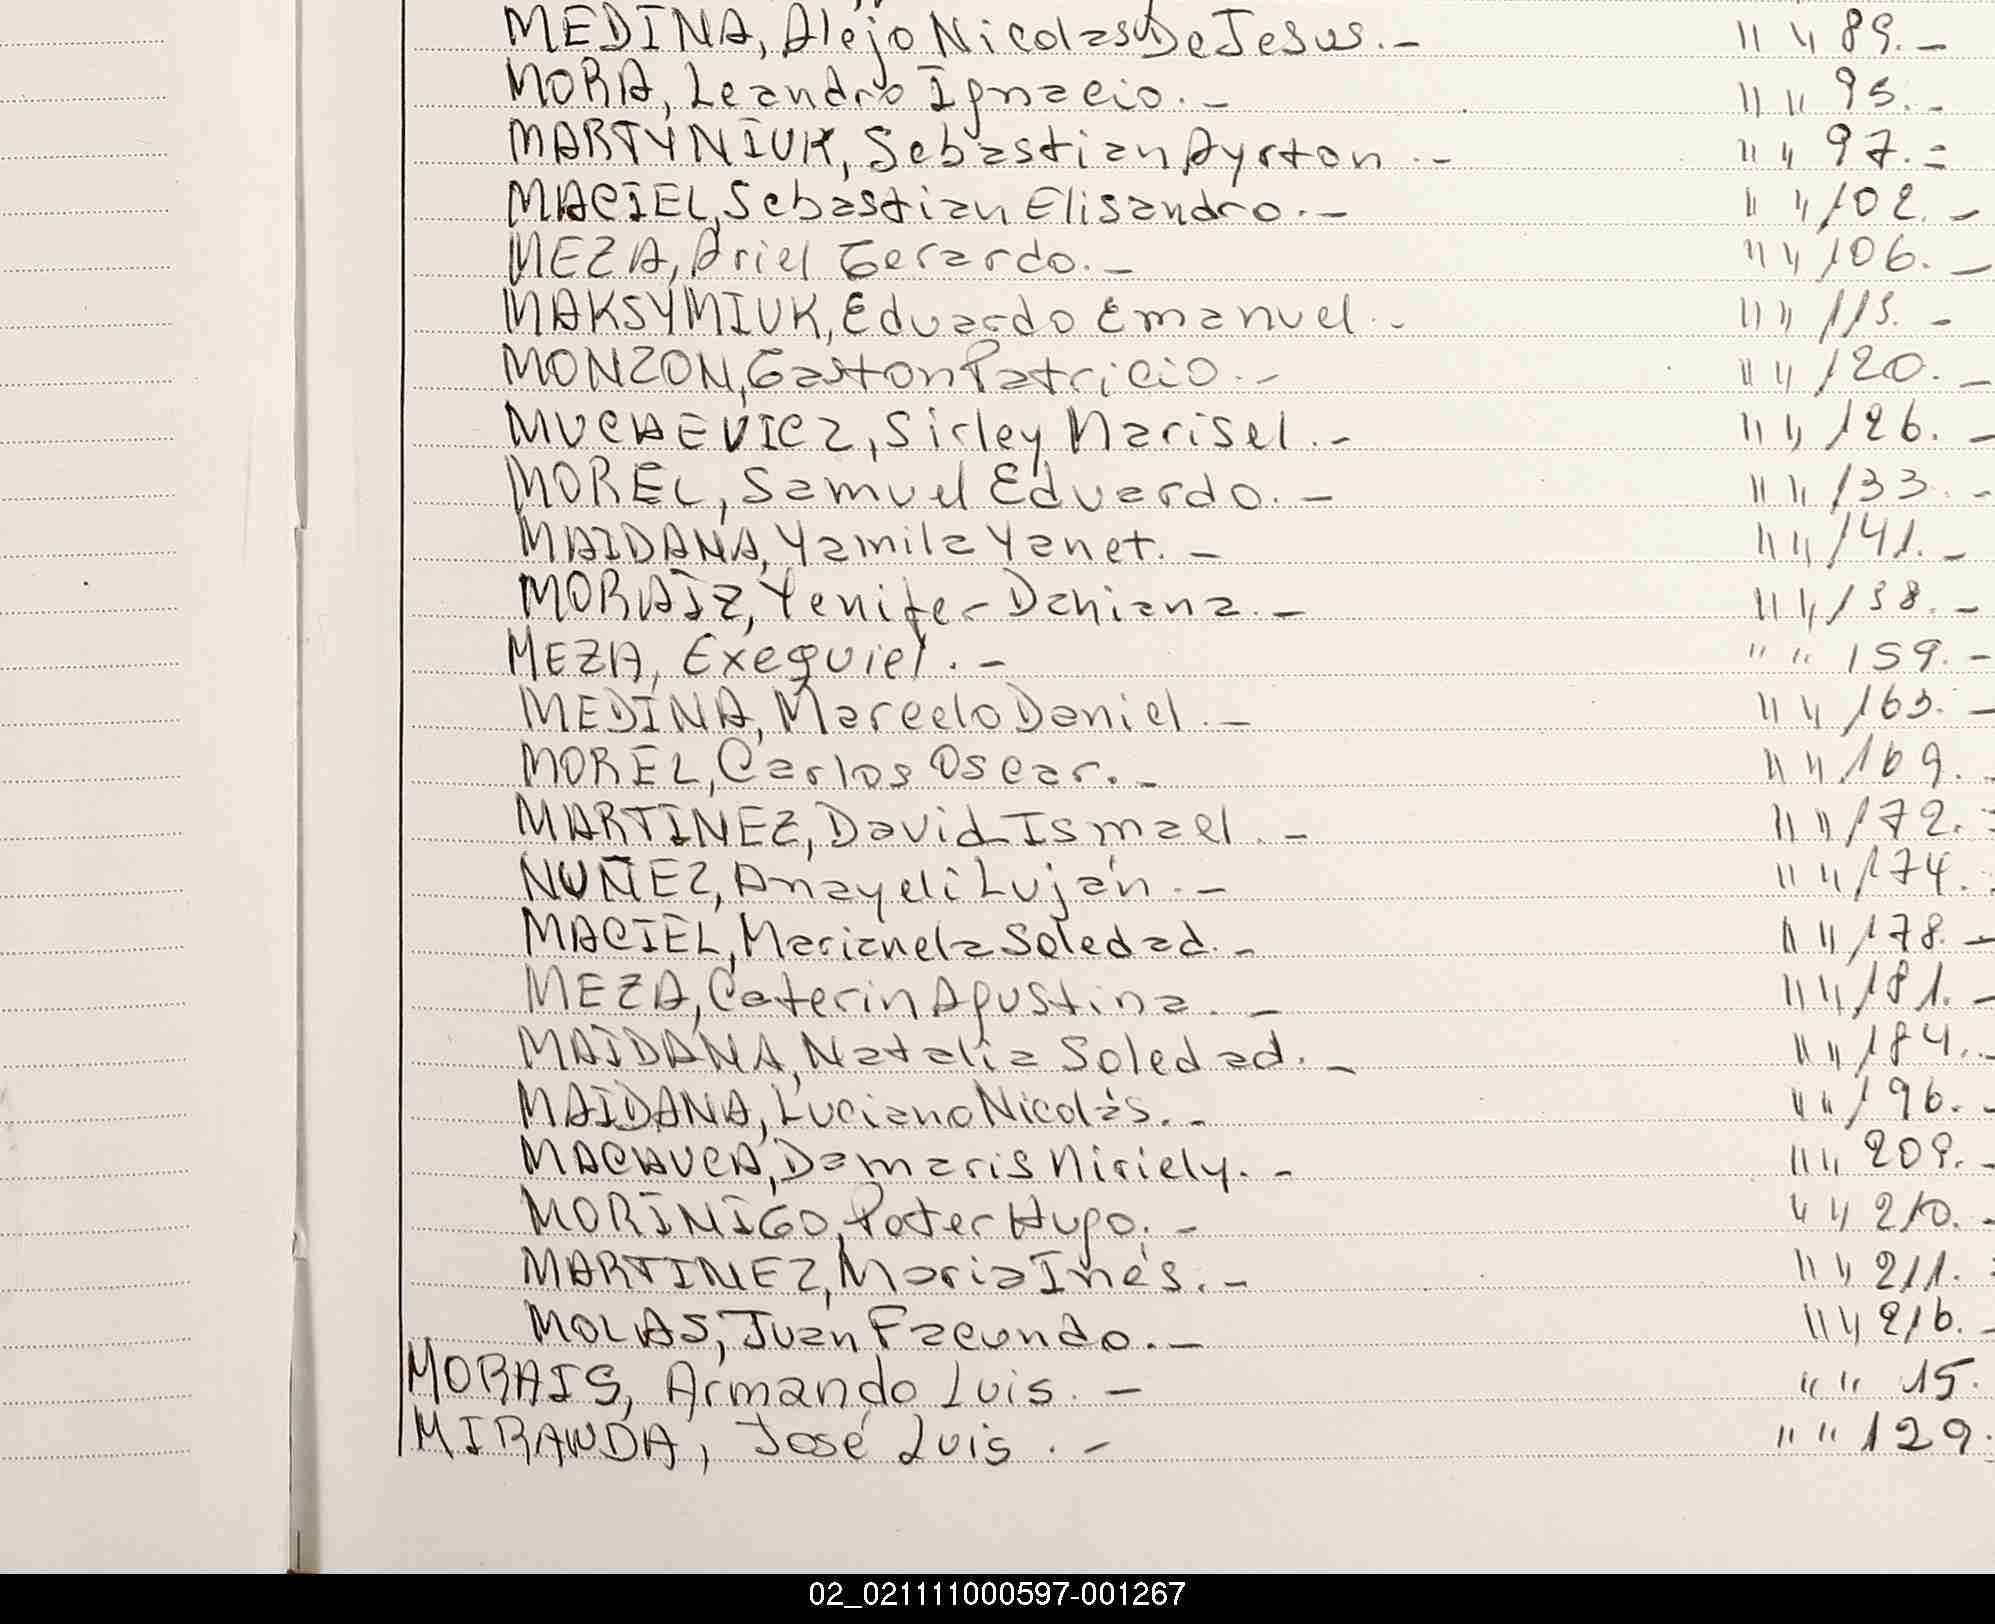 MEDINA, Alejo Nicolas De Jesus.- " " 89.-
MORA, Leandro Ignacio.- " " 95.-
MARTYNIUK, Sebastian Ayrton.- " " 97.=
MACIEL, Sebastian Elisandro.- " " 102.-
MEZA, Ariel Gerardo.- " " 106.-
MAKSYMIUK, Eduardo Emanuel.- " " 113.-
MONZON, Gaston Patricio.- " " 120.-
MUCHEVICZ, Sirley Marisel.- " " 126.-
MOREL, Samuel Eduardo.- " " 133.-
MAIDANA, Yamila Yanet.- " " 141.-
MORAIZ, Yenifer Dahiana.- " " 138.-
MEZA, Exequiel.- " " 159.-
MEDINA, Marcelo Daniel.- " " 163.-
MOREL, Carlos Oscar.- " " 169.-
MARTINEZ, David Ismael.- " " 172.=
NUÑEZ, Anayeli Luján.- " " 174.
MACIEL, Marianela Soledad.- " " 178.-
MEZA, Caterin Agustina.- " " 181.-
MAIDANA, Natalia Soledad.- " " 184.-
MAIDANA, Luciano Nicolás.- " " 196.-
MACHUCA, Damaris Miriely.- " " 209.-
MORINIGO, Peter Hugo.- " " 210.-
MARTINEZ, Maria Inés.- " " 211.=
MOLAS, Juan Facundo.- " " 216.-
MORAIS, Armando Luis.- " " 15.
MIRANDA, José Luis.- " " 129.
02_021111000597-001267